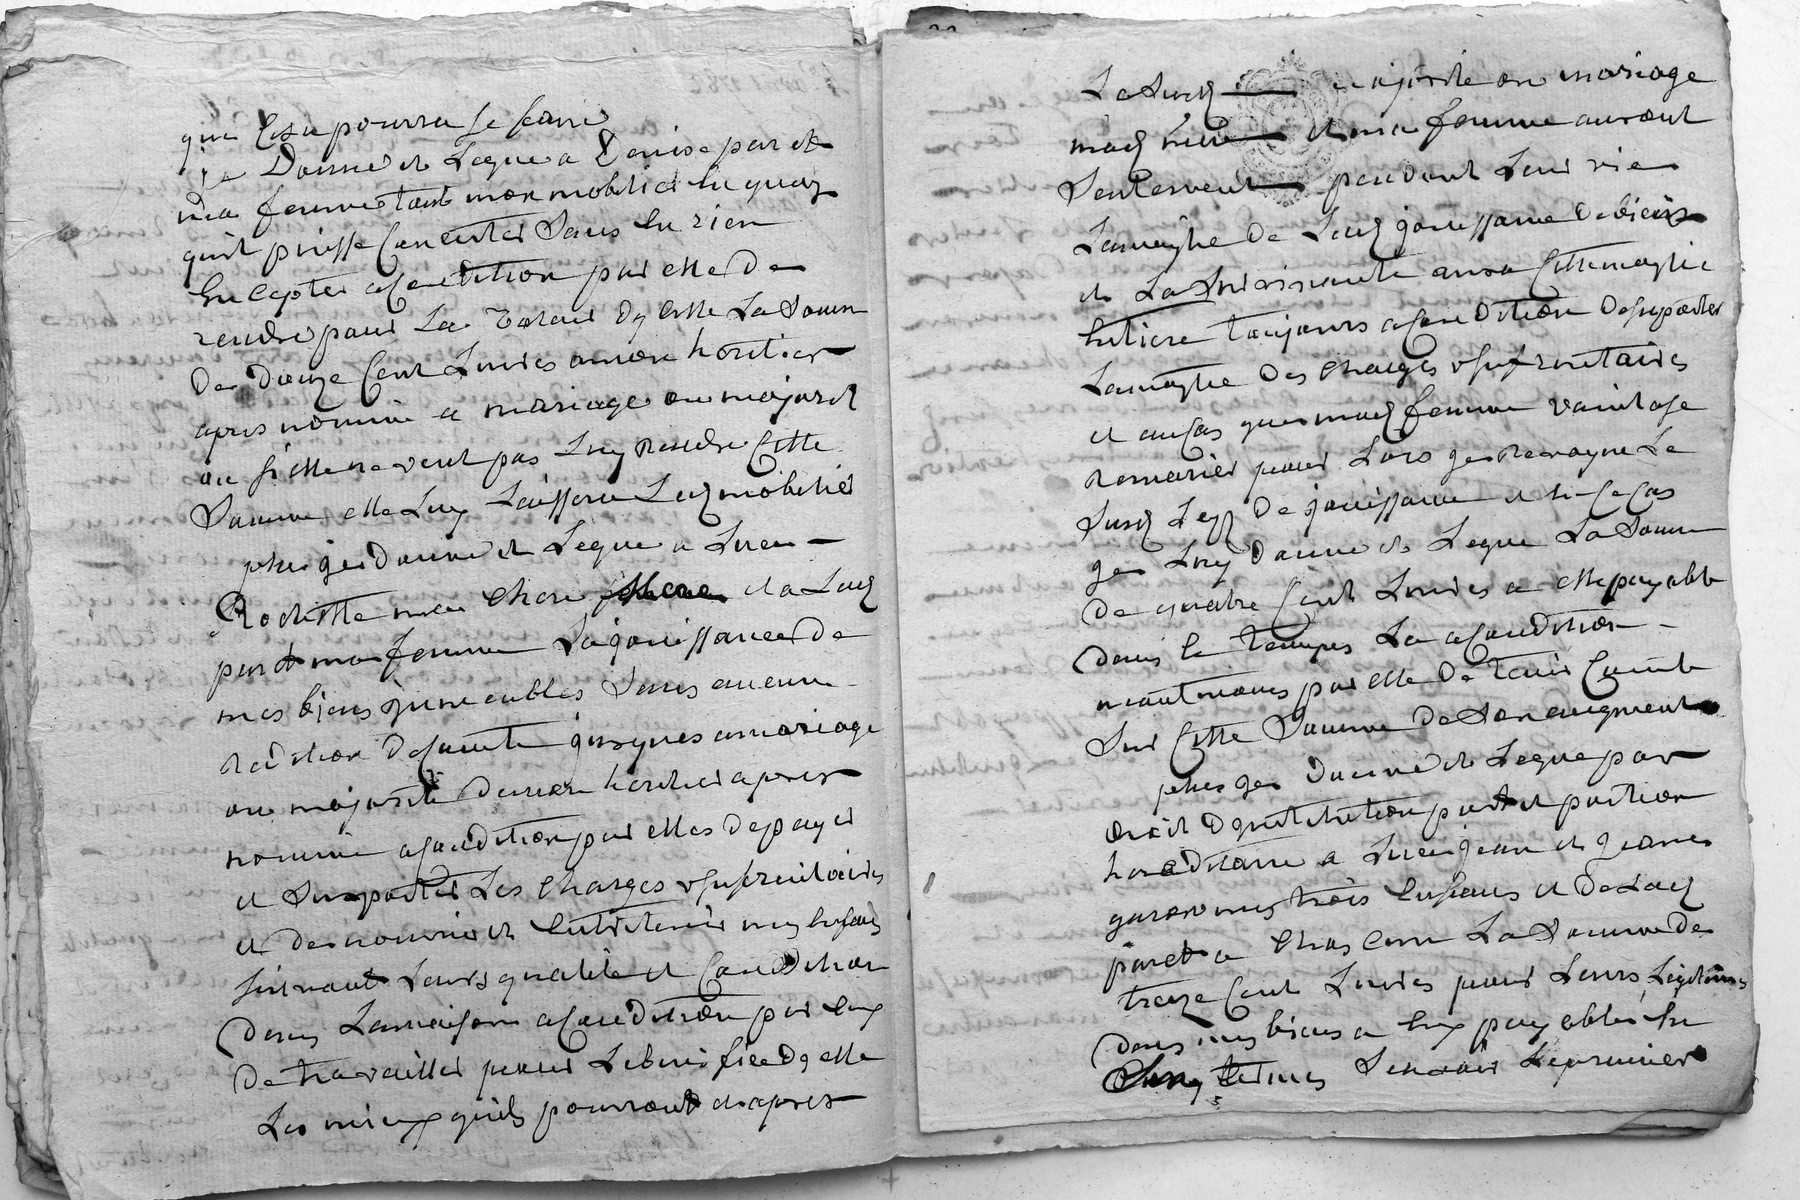 que cela pourra se faire
je Donne et Legue a Denise paret
ma femme tout mon mobilier En quoy
quil puisse Concister Sans En rien
Excepter a Condition par elle De
rendre pour La valeur D'icelle La Somme
De douze Cent Livres a mon heritier
apres nommé a mariage ou majorité
ou si elle ne veut pas Luy Rendre Cette
Somme elle Luy Laissera Led mobilier
plus je Donne et Legue a
Rochette ma Chere mere et a Lad
paret ma femme La jouissance De
mes biens jmmeubles Sans aucune
Redition De Compte jusques a mariage
ou majorité De mon heritier apres
nommé a Condition par elles De payer
et Suporter Les Charges usufruitaires
et De nourrir et Entretenir mes Enfans
suivant Leurs qualité et Condition
Dans La maison a Condition par Eux
De travailler pour Le benefice D'icelle
Le mieux quils pourront et apres
La Susd majorité ou mariage
mad mere et ma femme auront
Seulement pendant Leur vie
La moytie De Lad jouissance De biens
et La Survivante aura Cette moytie
Entiere toujours a Condition De suporter
La moytie Des Charges usufruitaires
et au Cas que mad femme vaint a se
Remarier pour Lors je Revoque Le
Susd Leg De jouissance et En Ce Cas
je Luy Donne et Legue La Somme
De quatre Cent Livres a elle payable
Dans le temps La a Condition
neantmoins par elle De tenir Compte
Sur Cette Somme De Son augment
plus je Donne et Legue par
Droit D'jnstitution part et portion
hereditaire a jean et
mes trois Enfans et De Lad
paret a Chascun La Somme De
treze Cent Livres pour Leurs Legitimes
Dans mes biens a Eux payable En
Cinq termes Scavoir Le premier